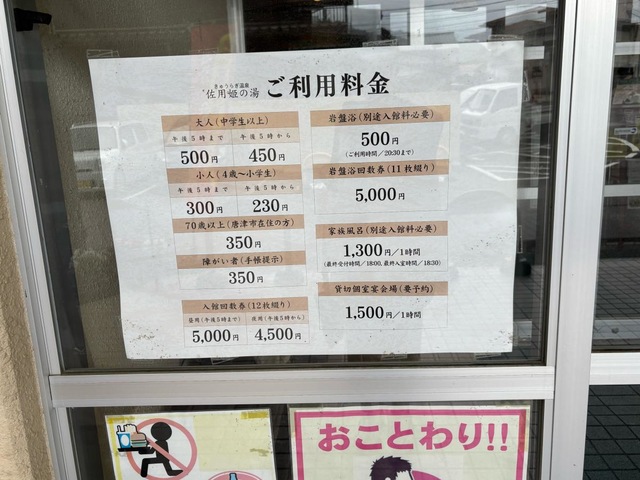 きゅうらぎ温泉
佐用姫の湯
ご利用料金
大人(中学生以上)
午後5時まで 午後5時から
500円 450円
小人(4歳~小学生)
午後5時まで 午後5時から
300円 230円
70歳以上(唐津市在住の方)
350円
障がい者(手帳提示)
350円
入館回数券(12枚綴り)
昼用(午後5時まで) 夜用(午後5時から)
5,000円 4,500円
岩盤浴(別途入館料必要)
500円
(ご利用時間/20:30まで)
岩盤浴回数券(11枚綴り)
5,000円
家族風呂(別途入館料必要)
1,300円/1時間
(最終受付時間/18:00、最終入室時間/18:30)
貸切個室宴会場(要予約)
1,500円/1時間
おことわり!!